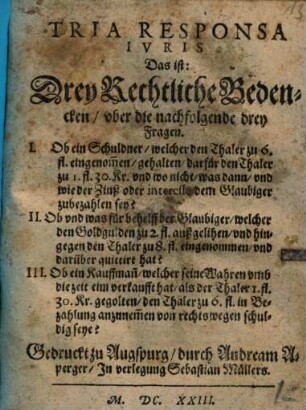 TRIA RESPONSA
IVRIS
Das ist:
Drey Rechtliche Beden-
cken / vber die nachfolgende drey
Fragen.
I. Ob ein Schuldner / welcher den Thaler zu 6.
fl. eingenom̃en / gehalten / darfür den Thaler
zu 1. fl. 30. Kr. vnd wo nicht / was dann / vnd
wie der Zinß oder interesse dem Glaubiger
zubezahlen sey?
II. Ob vnd was für behelff der Glaubiger / welcher
den Goldgulden zu 2. fl. außgelihen / vnd hin-
gegen den Thaler zu 8. fl. eingenommen / vnd
darüber quietirt hat?
III. Ob ein Kauffman̄ / welcher seine Wahren vmb
die zeit eim verkaufft hat / als der Thaler 1. fl.
30. Kr. gegolten / den Thaler zu 6. fl. in Be-
zahlung anzunem̃en von rechtswegen schul-
dig seye?
Gedruckt zu Augspurg / durch Andream A-
perger / In verlegung Sebastian Müllers.
M. DC. XXIII.